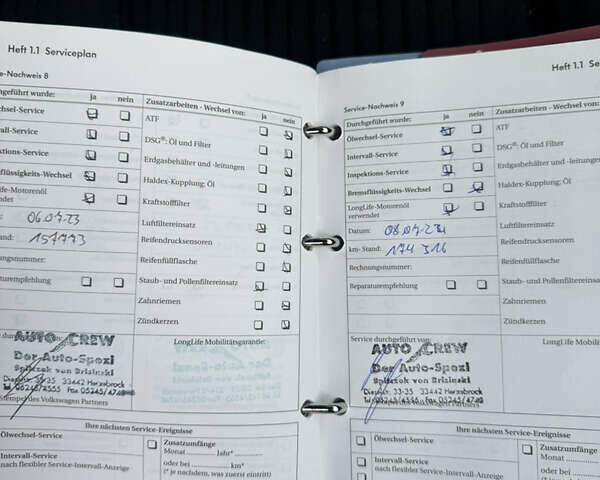 Heft 1.1 Serviceplan
e-Nachweis 8
geführt wurde: ja nein
chsel-Service
vall-Service
ktions-Service
sflüssigkeits-Wechsel
Life-Motorenöl
endet
06.07.23
and: 157773
nungsnummer:
aturempfehlung
Zusatzarbeiten - Wechsel von: ja nein
ATF
DSG®: Öl und Filter
Erdgasbehälter und -leitungen
Haldex-Kupplung: Öl
Kraftstofffilter
Luftfiltereinsatz
Reifendrucksensoren
Reifenfüllflasche
Staub- und Pollenfiltereinsatz
Zahnriemen
Zündkerzen
durchgeführt von:
AUTO CREW
Der Auto-Spezi
33442 Herzebrock
tempel des Volkswagen Partners
LongLife Mobilitätsgarantie:
Ihre nächsten Service-Ereignisse
Ölwechsel-Service
Service
nach flexibler Service-Intervall-Anzeige
Zusatzumfänge
Monat Jahr*
oder bei km*
(* je nachdem, was zuerst eintritt)
Heft 1.1 Se
Service-Nachweis 9
Durchgeführt wurde: ja nein
Ölwechsel-Service
Intervall-Service
Inspektions-Service
Bremsflüssigkeits-Wechsel
LongLife-Motorenöl
verwendet
Datum:
km- Stand: 174 316
Rechnungsnummer:
Reparaturempfehlung
Zusatzarbeiten - Wechsel von:
ATF
DSG®: Öl und Filter
Erdgasbehälter und -leitungen
Haldex-Kupplung: Öl
Kraftstofffilter
Luftfiltereinsatz
Reifendrucksensoren
Reifenfüllflasche
Staub- und Pollenfiltereinsatz
Zahnriemen
Zündkerzen
Service durchgeführt von:
AUTO CREW
Der Auto-Spezi
33442 Herzebrock
Stempel des Volkswagen Partners
LongLife Mobilitätsg
Ihre nächsten Service-Ereignisse
Ölwechsel-Service
Intervall-Service
nach flexibler Service-Intervall-Anzeige
Zusatzumfänge
Monat
oder bei
(* je nachdem, w